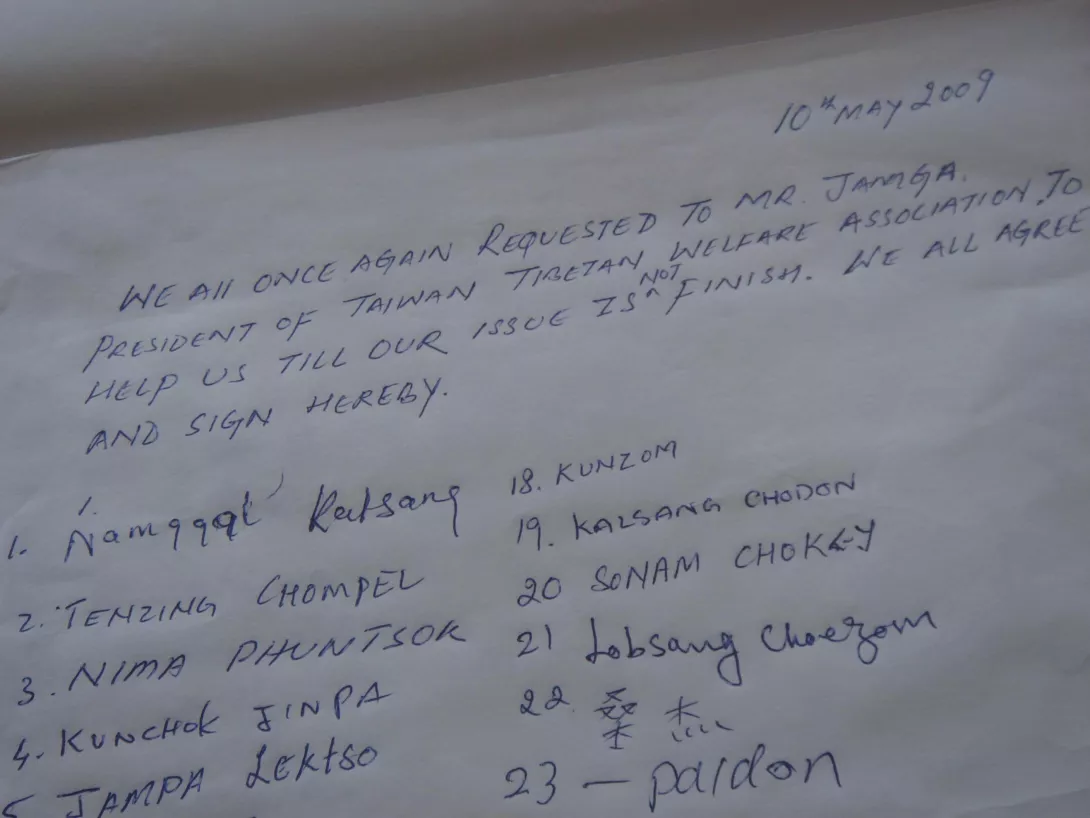 10th MAY 2009
WE All ONCE AGAIN REQUESTED TO MR. JAMGA.
PRESIDENT OF TAIWAN TIBETAN WELFARE ASSOCIATION, TO
HELP US TILL OUR ISSUE IS NOT FINISH. WE ALL AGREE
AND SIGN HEREBY.
1. Ratsang
2. TENZING CHOMPEL
3. NIMA PHUNTSOK
4. KUNCHOK JINPA
5 JAMPA LEKTSO
18. KUNZOM
19. KALSANG CHODON
20 SONAM CHOKEY
21 Lobsang Choezom
22. 桑杰
23 – paldon